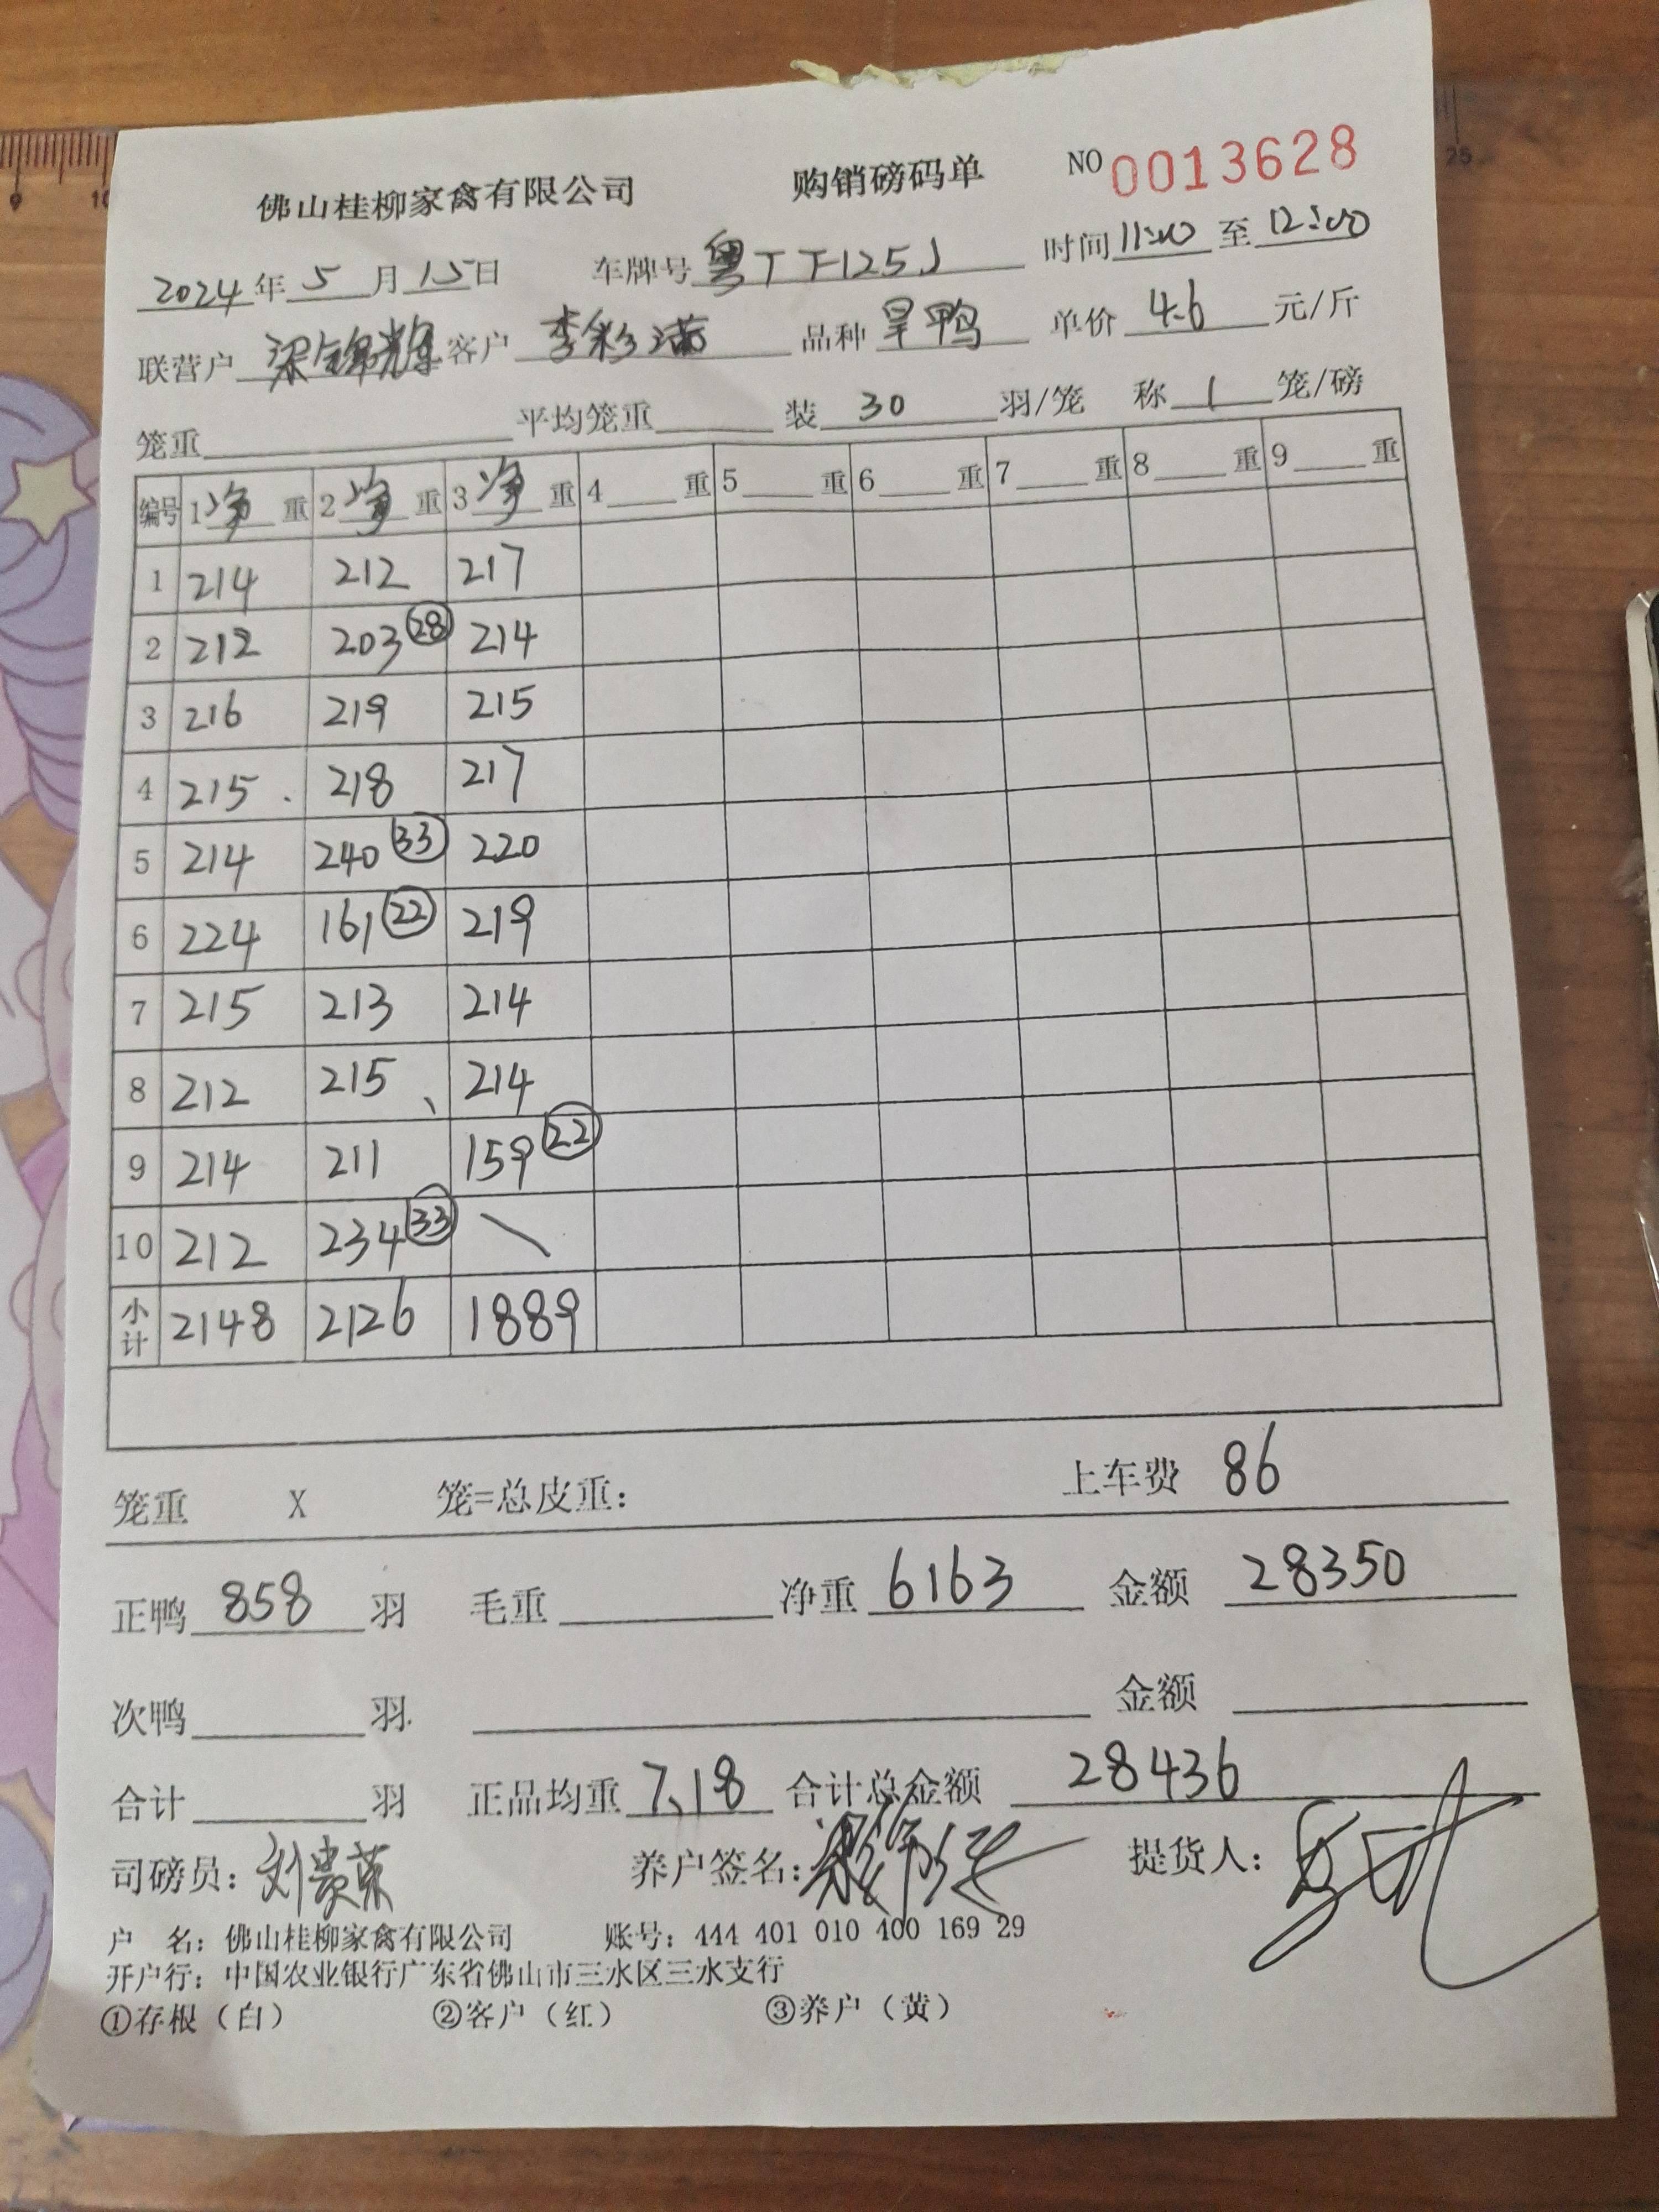 佛山桂柳家禽有限公司 购销磅码单 NO 0013628
2024年5月15日 车牌号 粤TF125J 时间 11:10 至 12:00
联营户 梁锦辉 客户 李彩满 品种 旱鸭 单价 4.6 元/斤
笼重 平均笼重 装 30 羽/笼 称 1 笼/磅
编号 1净重 2净重 3净重 4重 5重 6重 7重 8重 9重
1 214 212 217
2 212 203 28 214
3 216 219 215
4 215 218 217
5 214 240 33 220
6 224 161 22 219
7 215 213 214
8 212 215 214
9 214 211 159 22
10 212 234 33 \
小计 2148 2126 1889
笼重 X 笼=总皮重: 上车费 86
正鸭 858 羽 毛重 净重 6163 金额 28350
次鸭 羽 金额
合计 羽 正品均重 7.18 合计总金额 28436
司磅员: 刘贵荣 养户签名: 提货人:
户 名: 佛山桂柳家禽有限公司 账号: 444 401 010 400 169 29
开户行: 中国农业银行广东省佛山市三水区三水支行
①存根（白） ②客户（红） ③养户（黄）